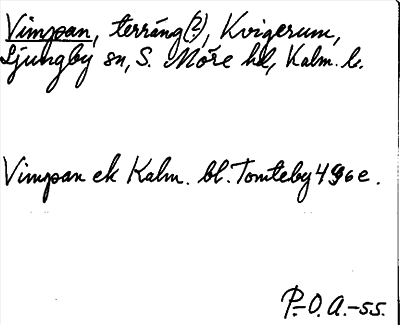 Vimpan, terräng(?), Kvigerum,
Ljungby sn, S. Möre hd, Kalm. l.
Vimpan ek Kalm. bl. Tomteby 4 96 e.
P.-O. A.-55.